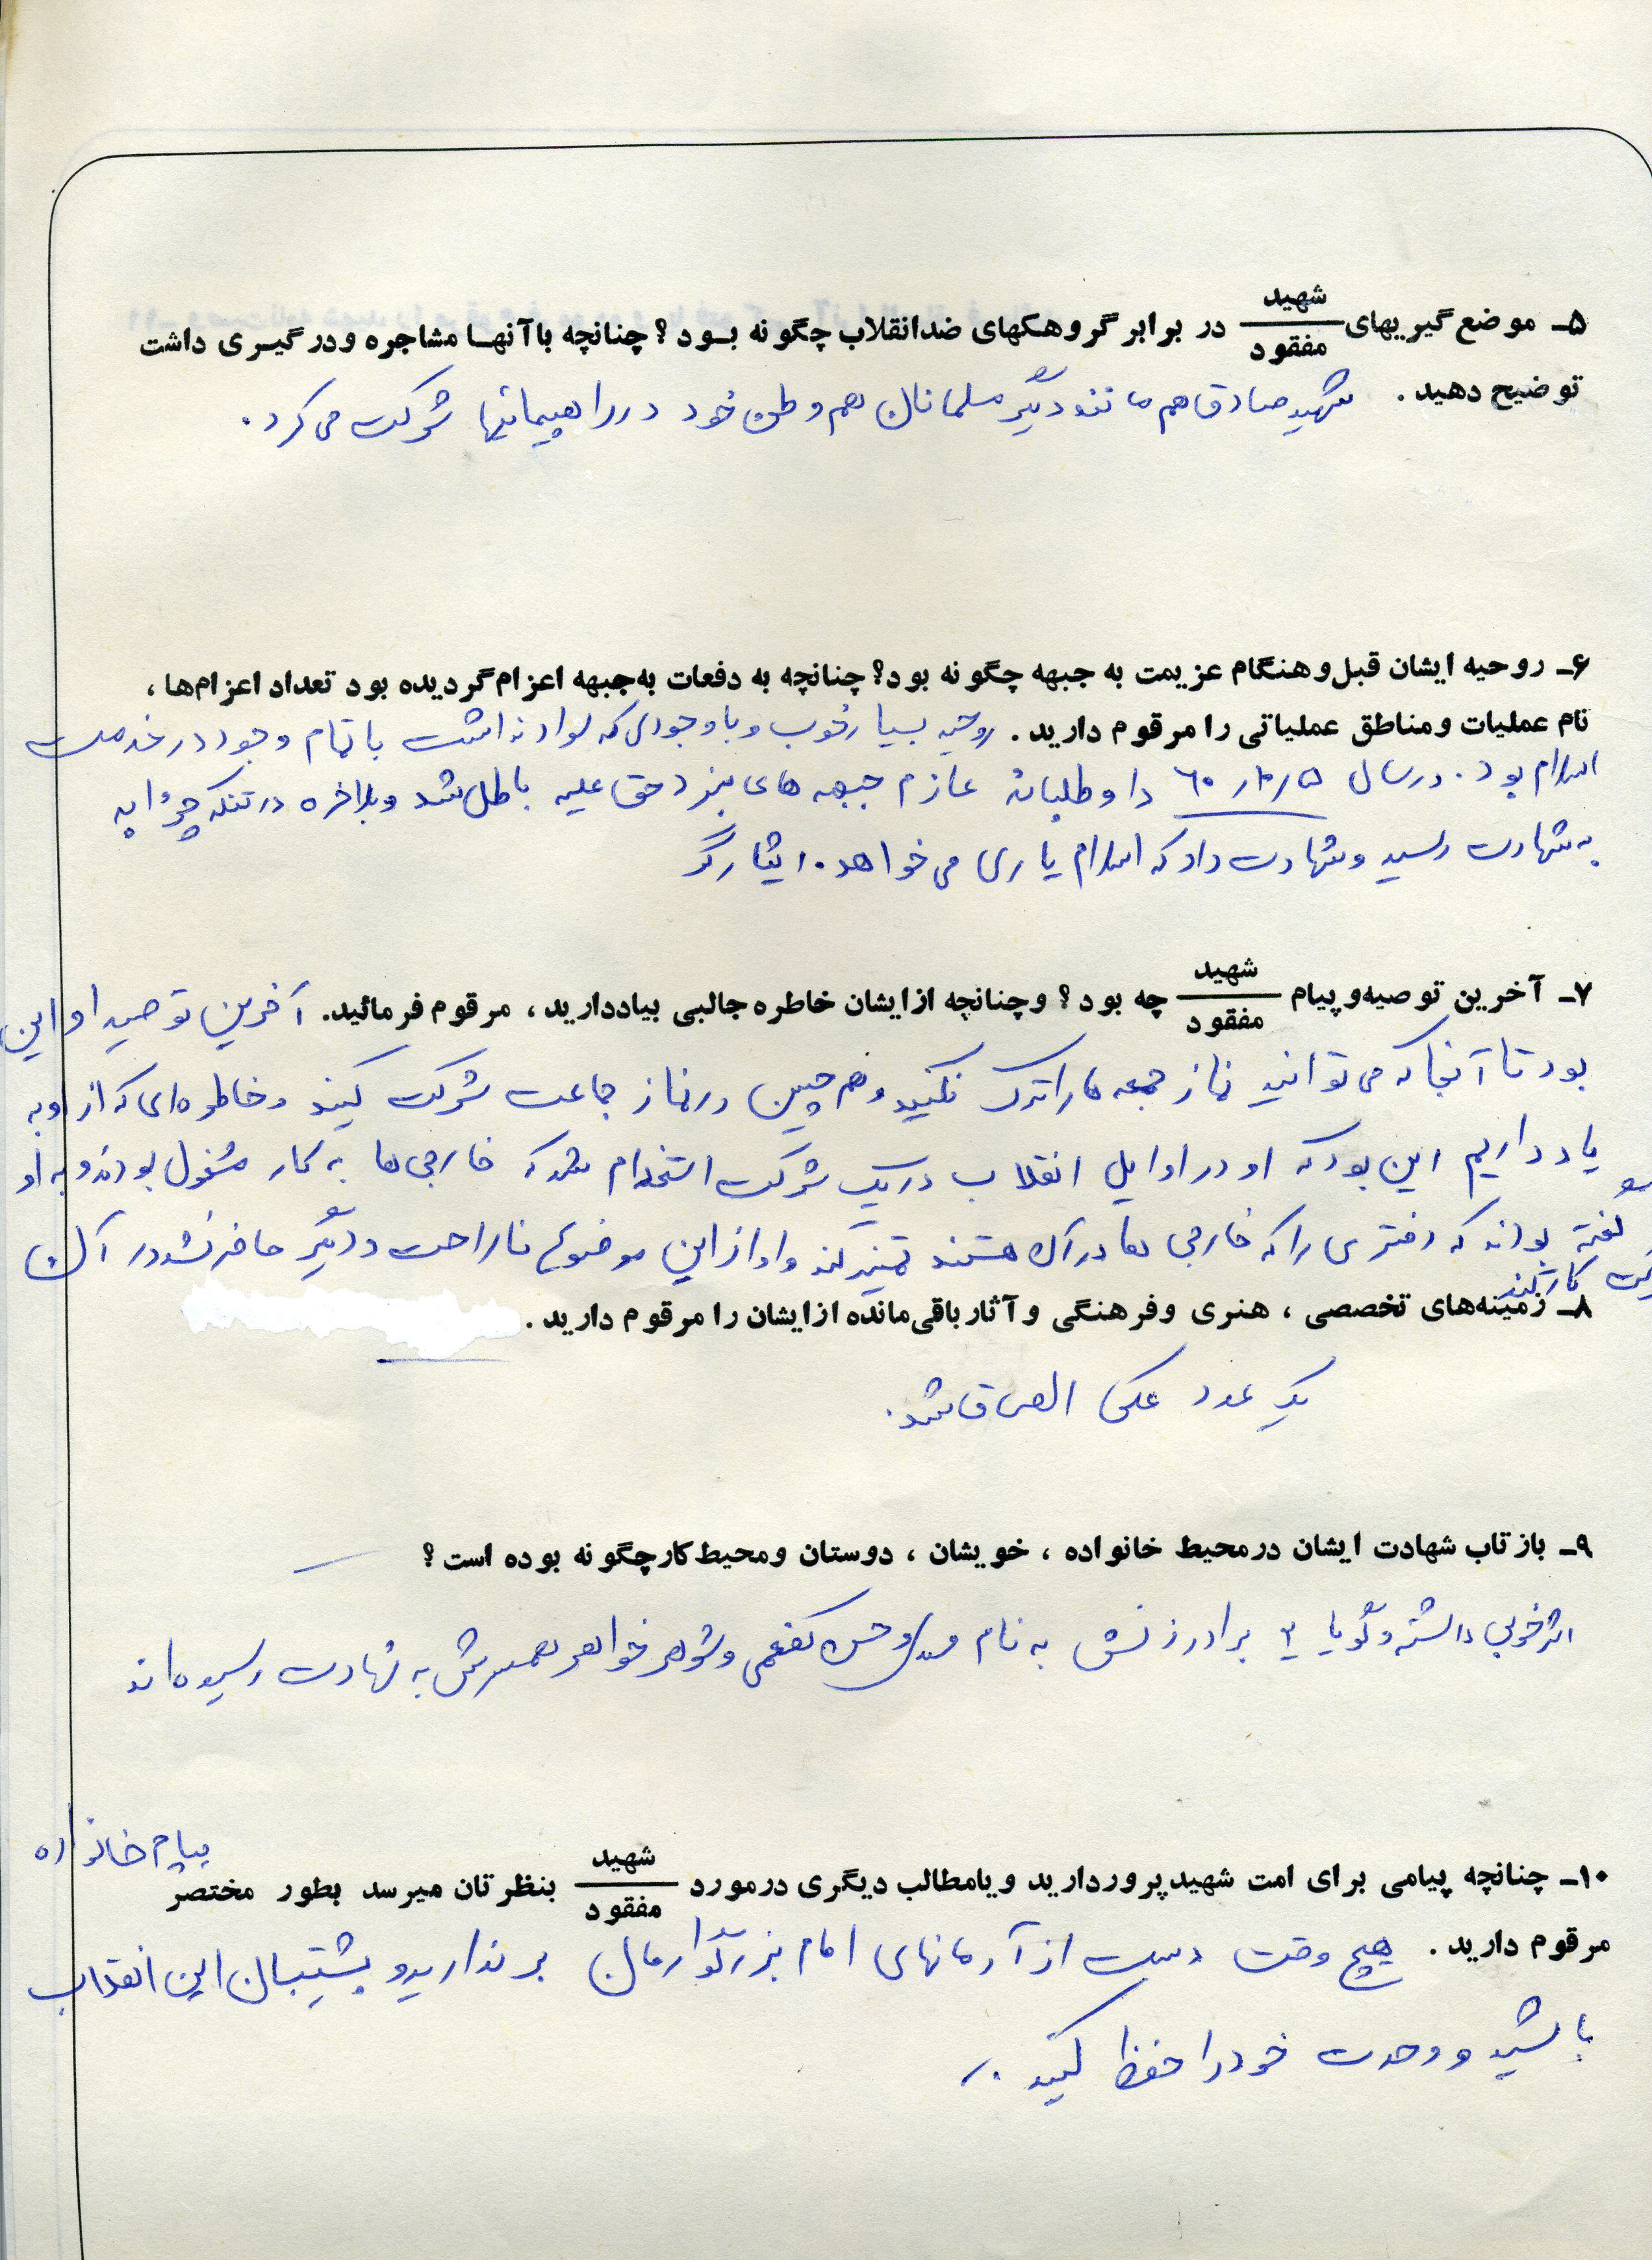 ۵ـ موضع گیریهای شهید/مفقود در برابر گروهکهای ضدانقلاب چگونه بود؟ چنانچه باآنها مشاجره ودرگیری داشت
توضیح دهید. شهید صادق هم مانند دیگر مسلمانان هم وطن خود در راهپیمائیها شرکت می کرد.
۶ـ روحیه ایشان قبل وهنگام عزیمت به جبهه چگونه بود؟ چنانچه به دفعات به جبهه اعزام گردیده بود تعداد اعزام‌ها،
نام عملیات ومناطق عملیاتی را مرقوم دارید. روحیه بسیار خوب و با وجودی که سواد نداشت با تمام وجود در خدمت
اسلام بود. در سال ۶۰/۱۰/۵ داوطلبانه عازم جبهه های نبرد حق علیه باطل شد و بلاخره در تنگه چزابه
به شهادت رسید و شهادت داد که اسلام یاری می خواهد. ایثارگر
۷ـ آخرین توصیه وپیام شهید/مفقود چه بود؟ وچنانچه ازایشان خاطره جالبی بیاددارید، مرقوم فرمائید. آخرین توصیه او این
بود تا آنجا که می توانید نماز جمعه ها را ترک نکنید و هم چنین در نماز جماعت شرکت کنید و خاطره‌ای که از او به
یاد داریم این بود که او در اوایل انقلاب در یک شرکت استخدام شد که خارجی ها به کار مشغول بودند و به او
گفته بودند که دفتری را که خارجی ها در آن هستند تمیز کند و او از این موضوع ناراحت و دیگر حاضر نشد در آن
شرکت کار کند
۸ـ زمینه‌های تخصصی، هنری وفرهنگی وآثار باقی‌مانده ازایشان را مرقوم دارید.
یک عدد عکس الصاق شد.
۹ـ بازتاب شهادت ایشان درمحیط خانواده، خویشان، دوستان ومحیط کارچگونه بوده است؟
اثر خوبی داشته و گویا ۲ برادر زنش به نام و حسن و شوهر خواهر همسرش به شهادت رسیده‌اند
پیام خانواده
۱۰ـ چنانچه پیامی برای امت شهیدپرور دارید ویامطالب دیگری درمورد شهید/مفقود بنظرتان میرسد بطور مختصر
مرقوم دارید. هیچ وقت دست از آرمانهای امام بزرگوارمان بر ندارید و پشتیبان این انقلاب
باشید و وحدت خود را حفظ کنید.